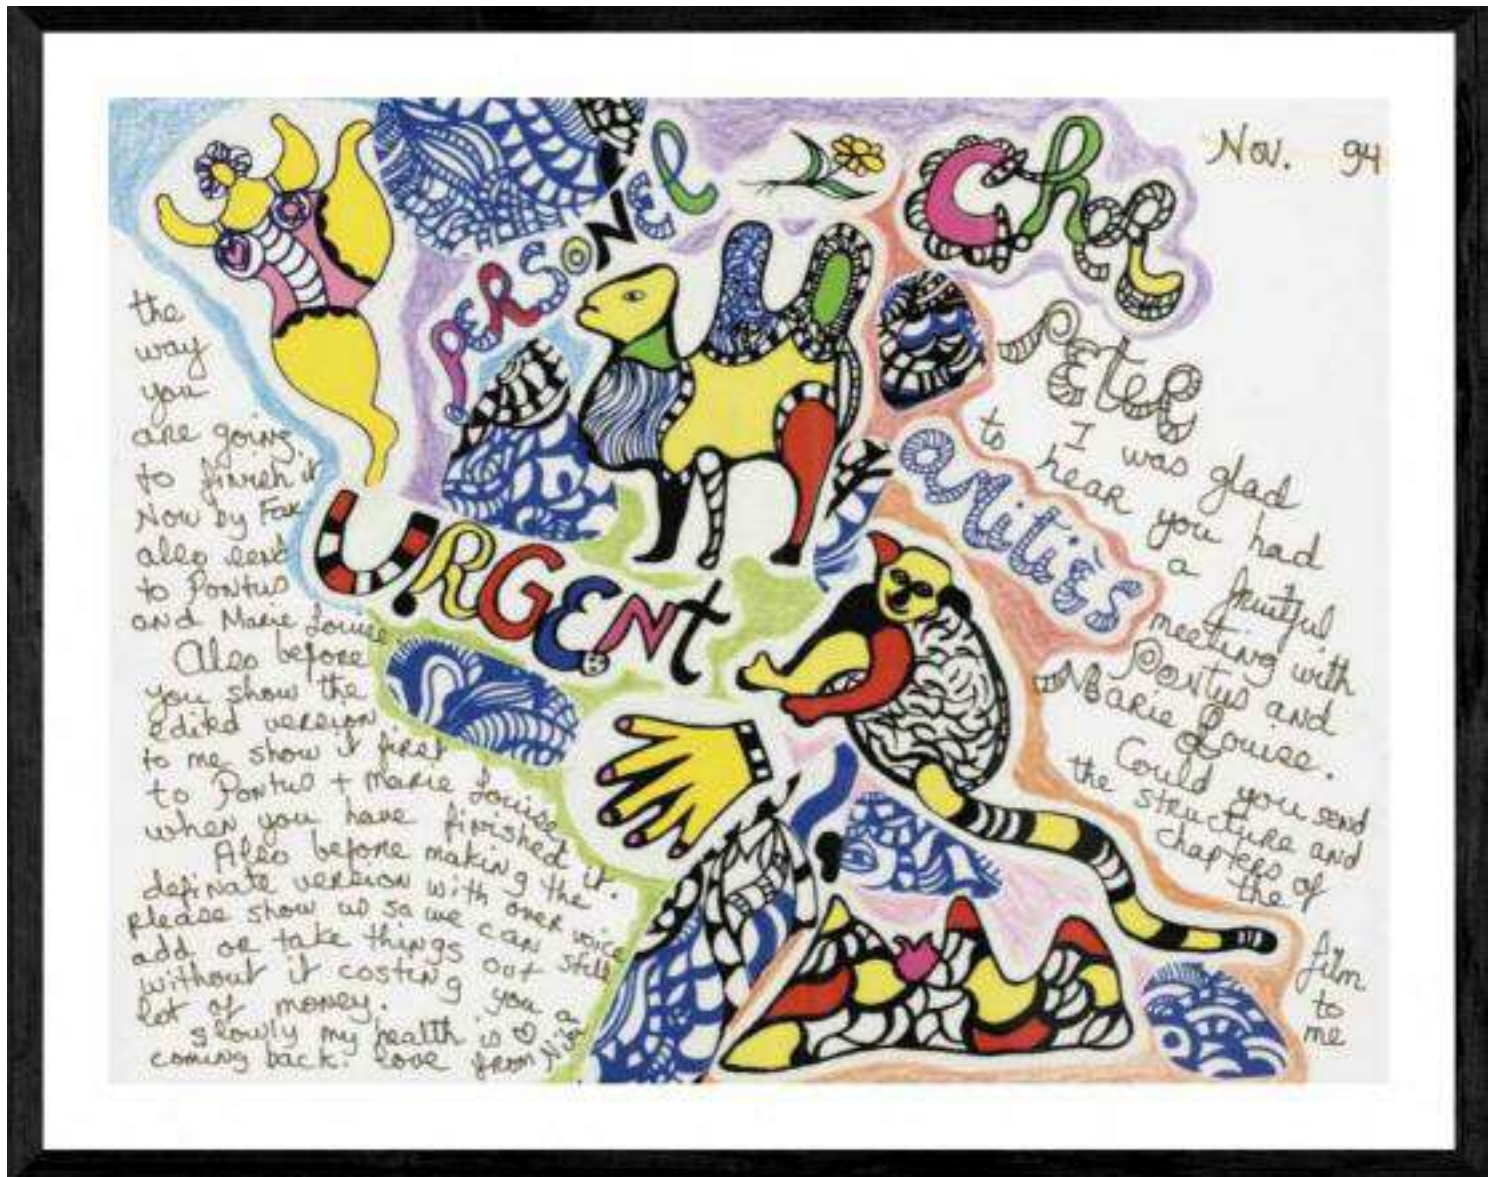 Nov. 94
PERSONEL
Cher
PETER
I was glad
to hear you had
a fruitful
meeting with
Pontus and
Marie Louise.
Could you send
the structure and
chapters of
the
film
to
me
AMitiéS
URGENt
the
way
you
are going
to finish it
Now by Fax
also send
to Pontus
and Marie Louise
Also before
you show the
edited version
to me show it first
to Pontus + Marie Louise
when you have finished it.
Also before making the
definate version with over voice
please show us so we can still
add or take things out
without it costing you a
lot of money.
slowly my health is
coming back. love from Niki